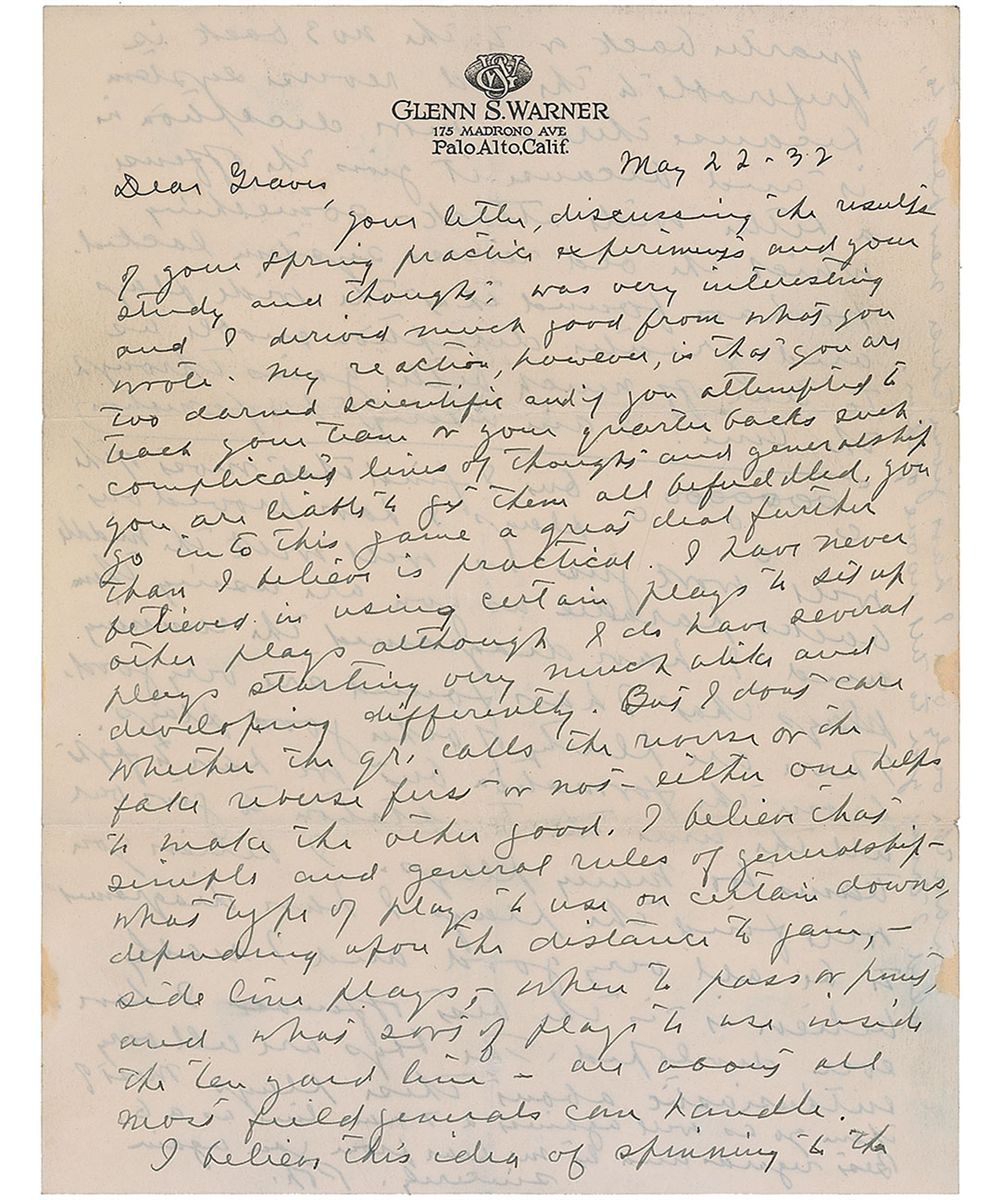 GLENN S. WARNER
175 MADRONO AVE
Palo Alto, Calif.
May 22-32
Dear Graves,
your letter, discussing the results
of your spring practice experiments and your
study and thought, was very interesting
and I derived much good from what you
wrote. My reaction, however, is that you are
too darned scientific and if you attempted to
teach your team or your quarter backs such
complicated lines of thought and generalship
you are liable to get them all befuddled. you
go into this game a great deal further
than I believe is practical. I have never
believed in using certain plays to set up
other plays although I do have several
plays starting very much alike and
developing differently. But I dont care
whether the qr. calls the reverse or the
fake reverse first or not - either one helps
to make the other good. I believe that
simple and general rules of generalship -
what type of plays to use on certain downs,
depending upon the distance to gain, -
side line plays, - when to pass or punt,
and what sort of plays to use inside
the ten yard line - are about all
most field generals can handle.
I believe this idea of spinning to the